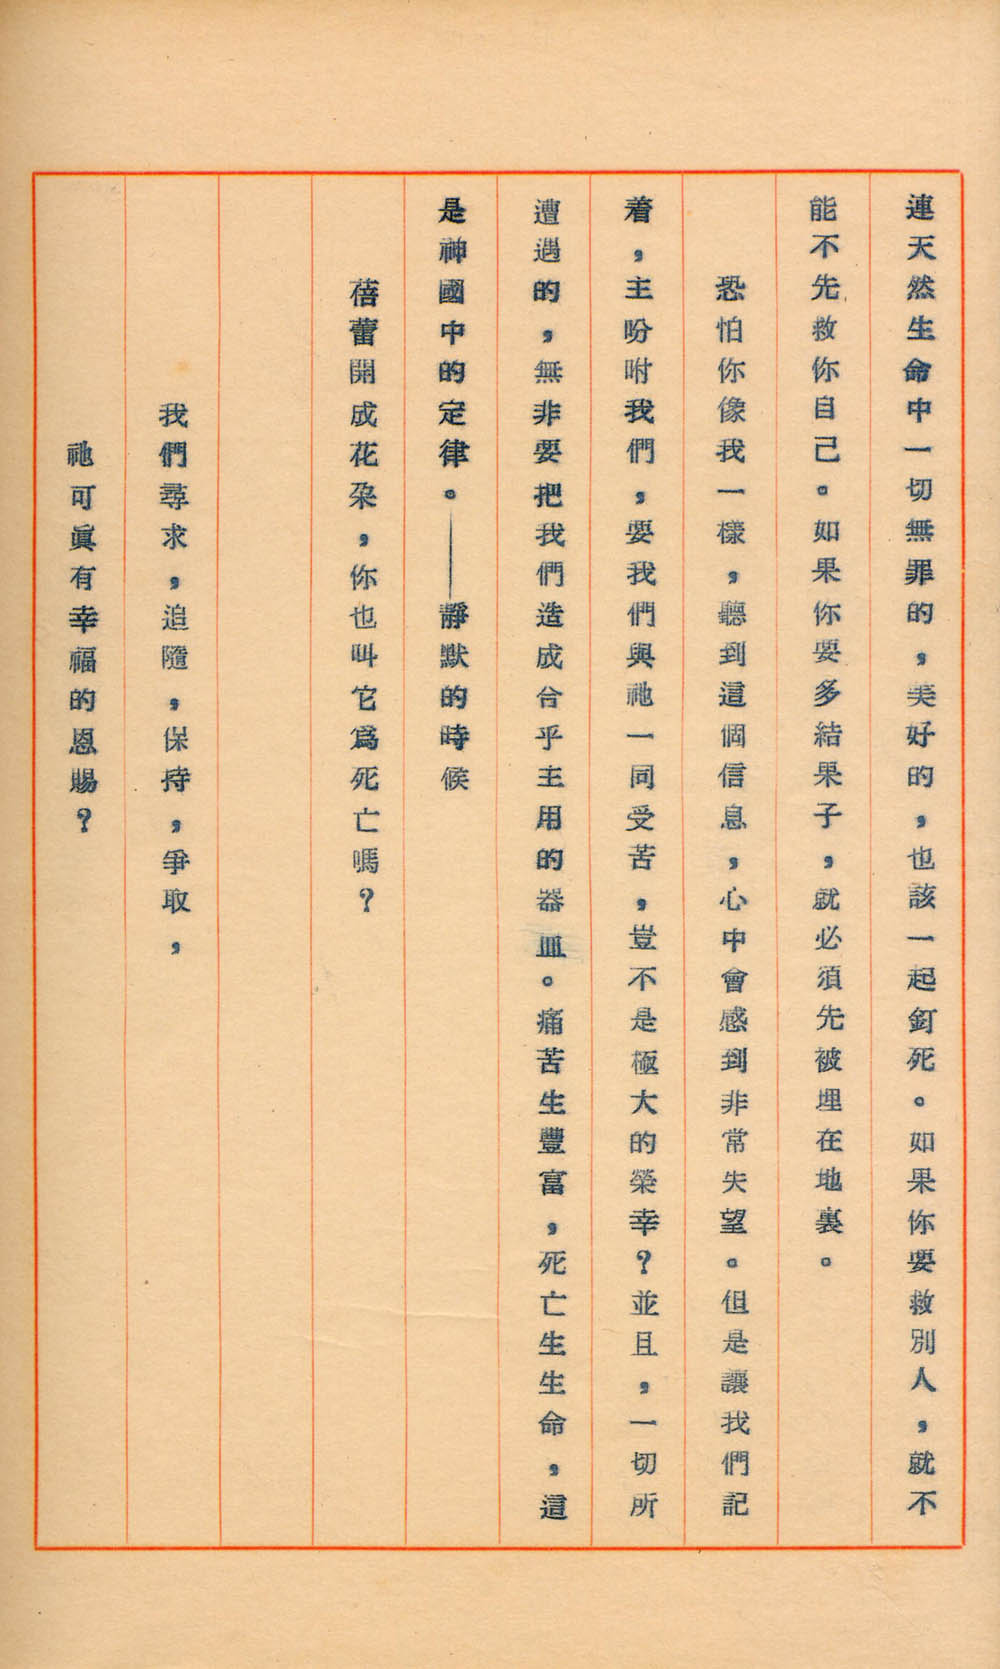 連天然生命中一切無罪的，美好的，也該一起釘死。如果你要救別人，就不
能不先救你自己。如果你要多結果子，就必須先被埋在地裏。
恐怕你像我一樣，聽到這個信息，心中會感到非常失望。但是讓我們記
着，主吩咐我們，要我們與祂一同受苦，豈不是極大的榮幸？並且，一切所
遭遇的，無非要把我們造成合乎主用的器皿。痛苦生豐富，死亡生生命，這
是神國中的定律。——靜默的時候
蓓蕾開成花朶，你也叫它爲死亡嗎？
我們尋求，追隨，保持，爭取，
祂可眞有幸福的恩賜？